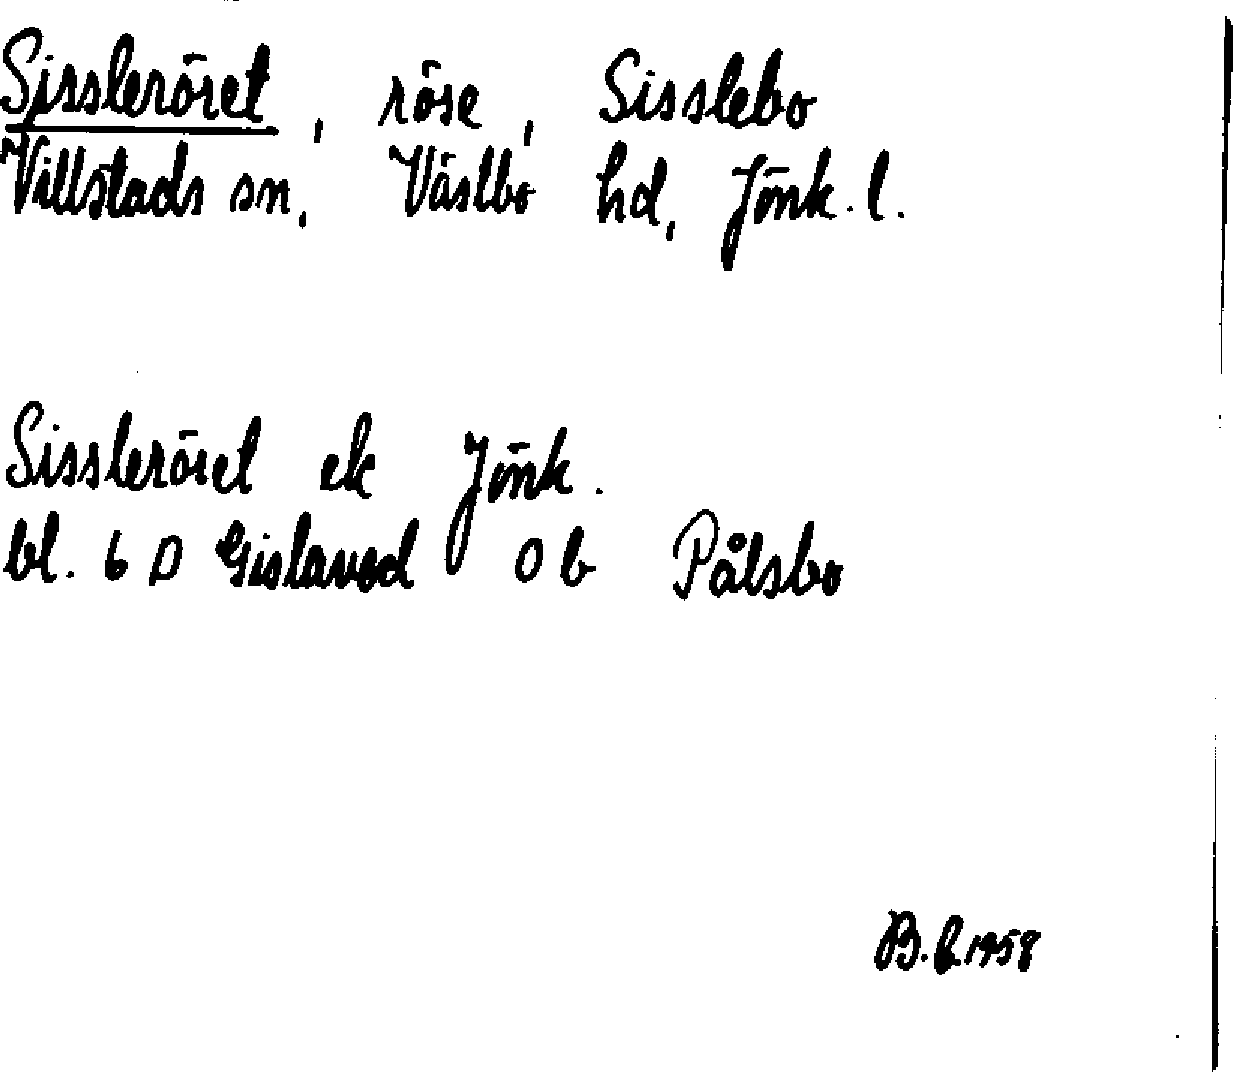 Sissleröret, röse, Sisslebo
Villstads sn, Västbo hd, Jönk. l.
Sissleröret ek Jönk.
bl. 6 D Gislaved 0 b Pålsbo
B. L. 1958